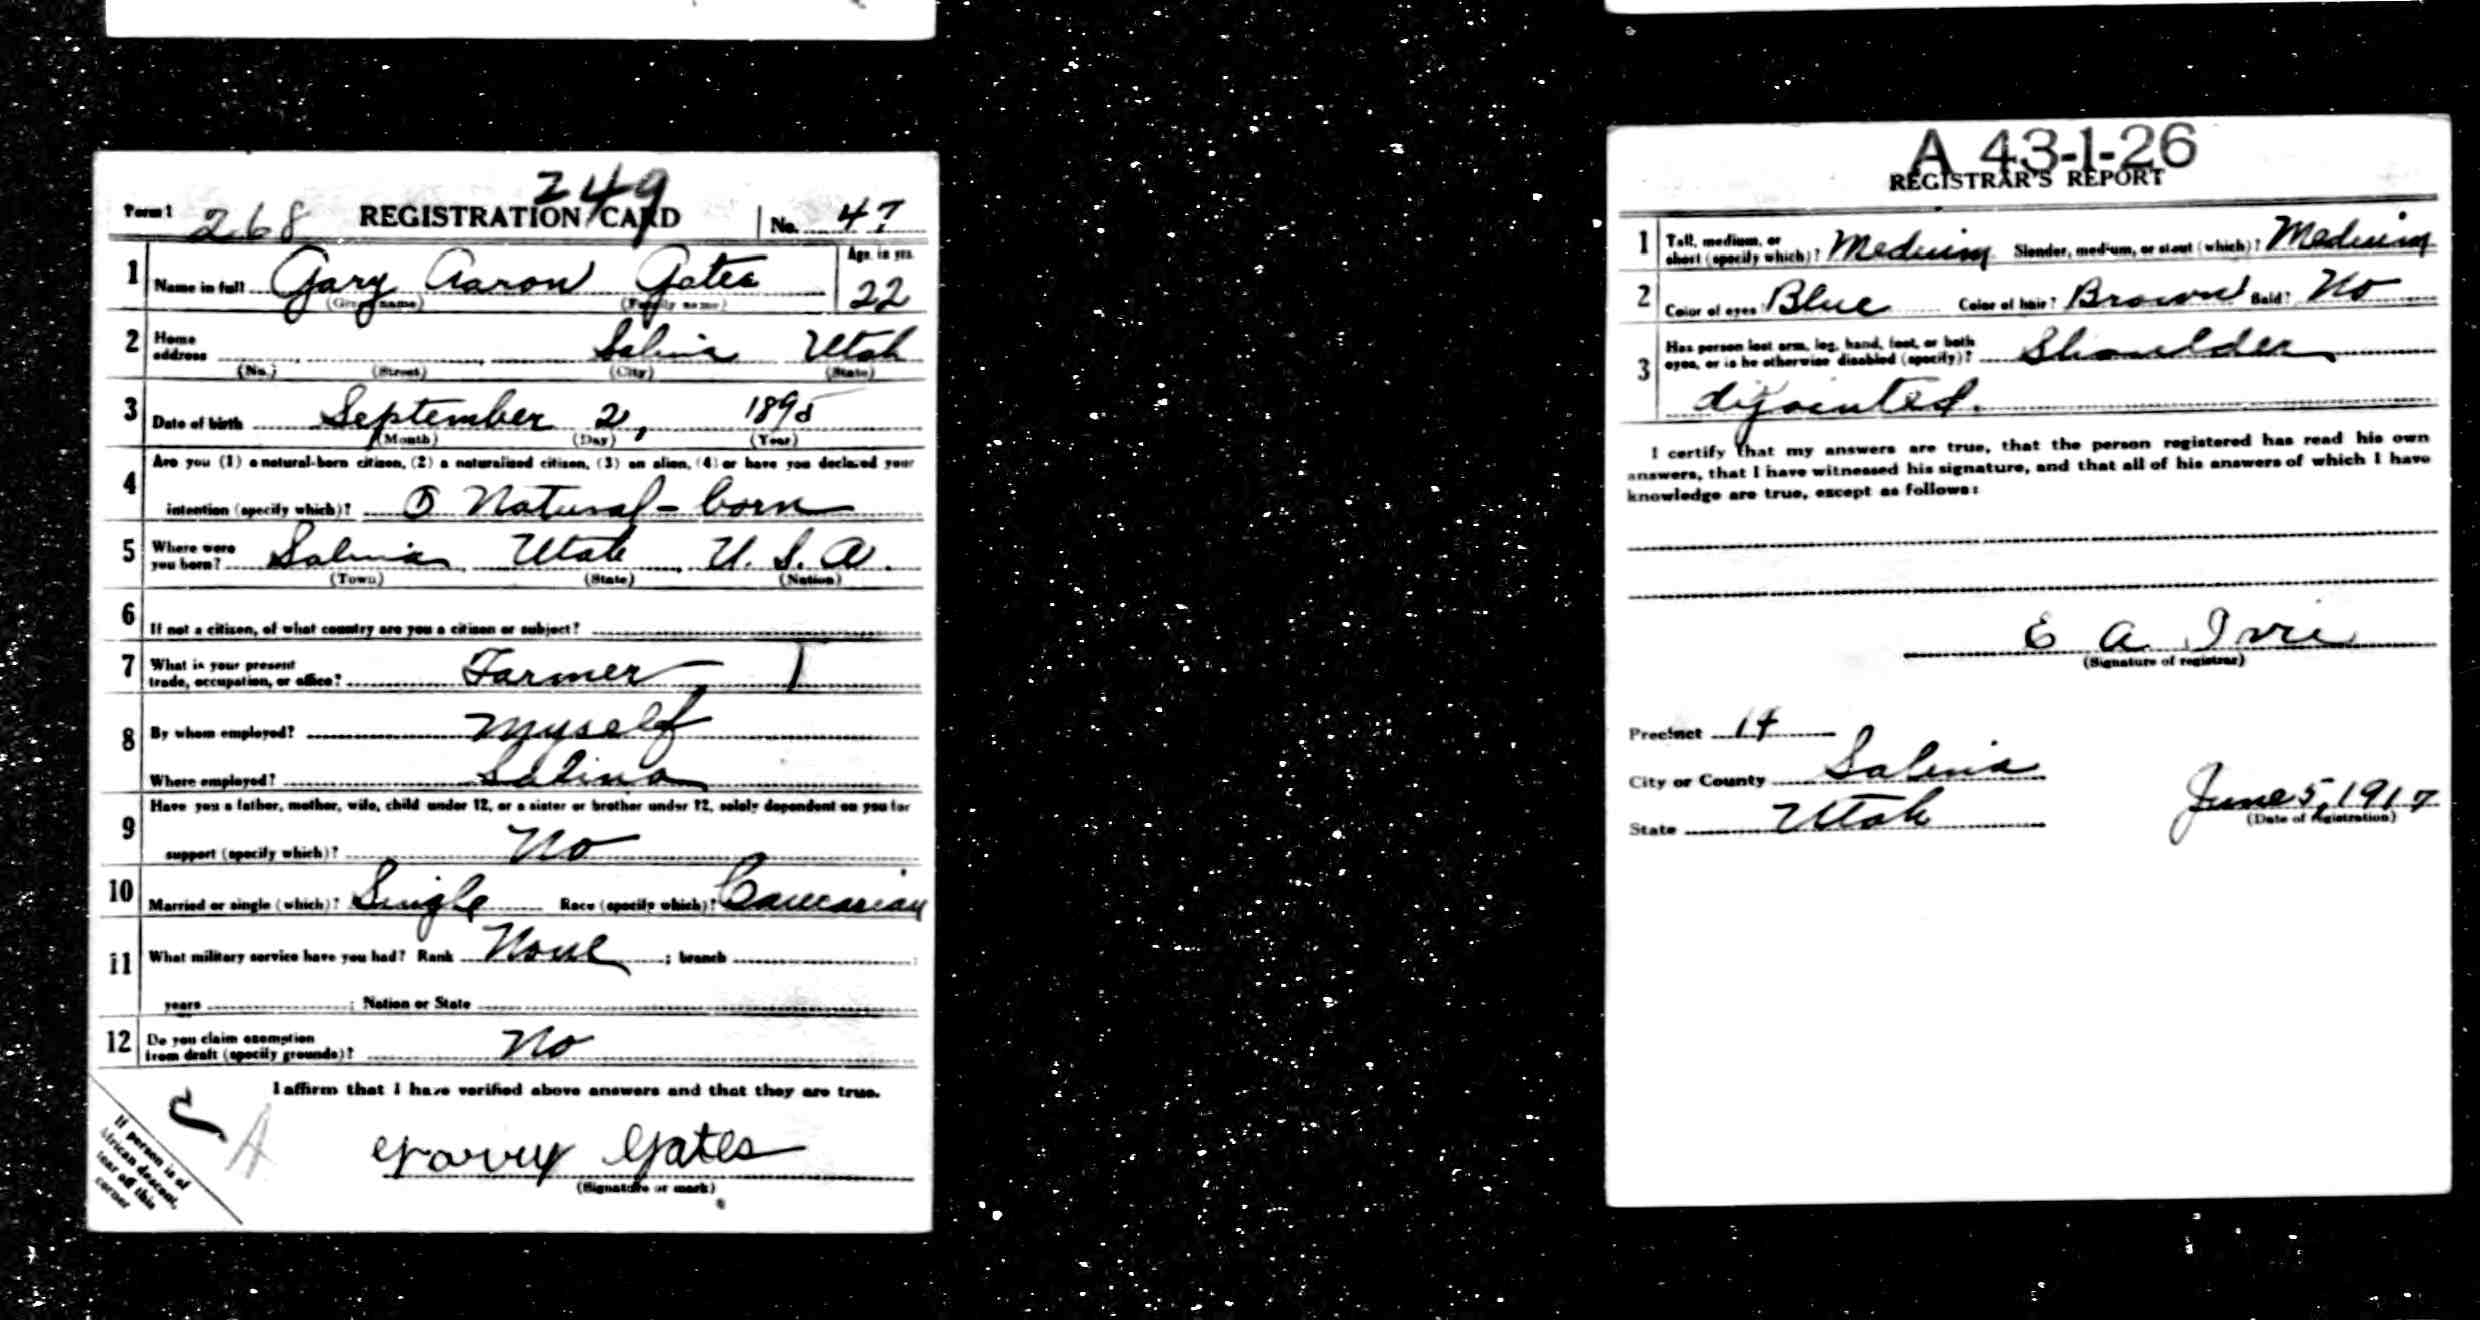 249
Form 1 268 REGISTRATION CARD No. 47
1 Name in full Gary Aaron Gates Age, in yrs. 22
(Given name) (Family name)
2 Home address Salina Utah
(No.) (Street) (City) (State)
3 Date of birth September 2, 1895
(Month) (Day) (Year)
4 Are you (1) a natural-born citizen, (2) a naturalized citizen, (3) an alien, (4) or have you declared your
intention (specify which)? ① Natural-born
5 Where were you born? Salina Utah U. S. A.
(Town) (State) (Nation)
6 If not a citizen, of what country are you a citizen or subject?
7 What is your present trade, occupation, or office? Farmer
8 By whom employed? Myself
Where employed? Salina
9 Have you a father, mother, wife, child under 12, or a sister or brother under 12, solely dependent on you for
support (specify which)? No
10 Married or single (which)? Single Race (specify which)? Caucasian
11 What military service have you had? Rank None ; branch
years ; Nation or State
12 Do you claim exemption from draft (specify grounds)? No
I affirm that I have verified above answers and that they are true.
A
If person is of
African descent,
tear off this
corner
Garry Gates
(Signature or mark)
A 43-1-26
REGISTRAR'S REPORT
1 Tall, medium, or short (specify which)? Medium Slender, medium, or stout (which)? Medium
2 Color of eyes? Blue Color of hair? Brown Bald? No
3 Has person lost arm, leg, hand, foot, or both eyes, or is he otherwise disabled (specify)? Shoulder
disjointed.
I certify that my answers are true, that the person registered has read his own
answers, that I have witnessed his signature, and that all of his answers of which I have
knowledge are true, except as follows:
E A Ivie
(Signature of registrar)
Precinct 14
City or County Salina
State Utah
June 5, 1917
(Date of registration)